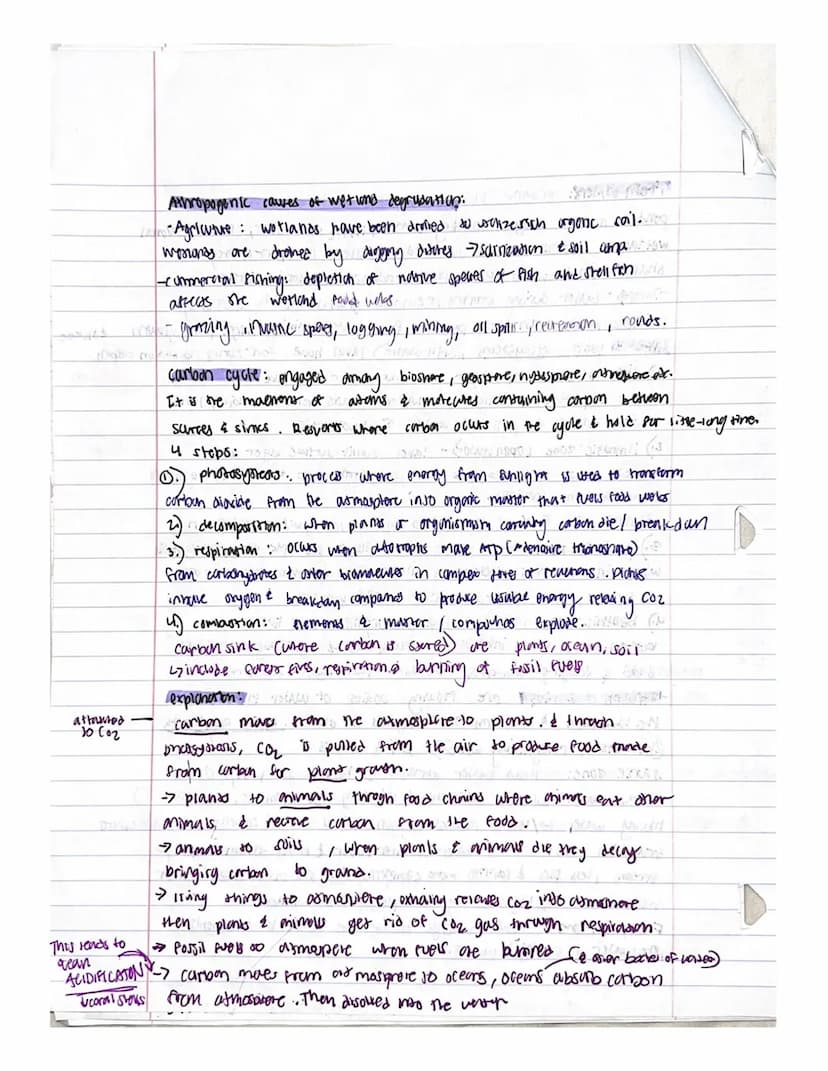 Anthropogenic causes of wetland degradation:
- Agriculture : wetlands have been drained to utilize rich organic soil.
wetlands are drained by digging ditches → salinization & soil
- commercial fishing: depletion of native species of fish and shellfish
affects the wetland food webs
- grazing, invasive species, logging, mining, oil spills, recreation, roads.
carbon cycle: engaged among biosphere, geosphere, hydrosphere, atmosphere etc.
It is the movement of atoms & molecules containing carbon between
sources & sinks. Reservoirs where carbon occurs in the cycle & hold for little-long time.
4 steps:
1.) photosynthesis: process where energy from sunlight is used to transform
carbon dioxide from the atmosphere into organic matter that fuels food webs
2.) decomposition: when plants or organisms carrying carbon die / breakdown
3.) respiration : occurs when autotrophs make ATP (adenosine triphosphate)
from carbohydrates & other biomolecules in complex series of reactions. plants
intake oxygen & breakdown compounds to produce usable energy releasing CO2
4) combustion: elements & matter / compounds explode.
carbon sink (where carbon is stored) are plants, ocean, soil
↳ include forest fires, respiration & burning of fossil fuels
explanation:
attached to CO2
carbon moves from the atmosphere to plants. & through
photosynthesis, CO2 is pulled from the air to produce food made
from carbon for plant growth.
→ plants to animals through food chains where animals eat other
animals, & receive carbon from the food.
→ animals to soils, when plants & animals die they decay
bringing carbon to ground.
→ living things to atmosphere, exhaling releases CO2 into atmosphere
then plants & animals get rid of CO2 gas through respiration
→ fossil fuels to atmosphere when fuels are burned
(& other bodies of water)
→ carbon moves from atmosphere to oceans, oceans absorb carbon
from atmosphere. Then dissolved into the water
This leads to
ocean
ACIDIFICATION